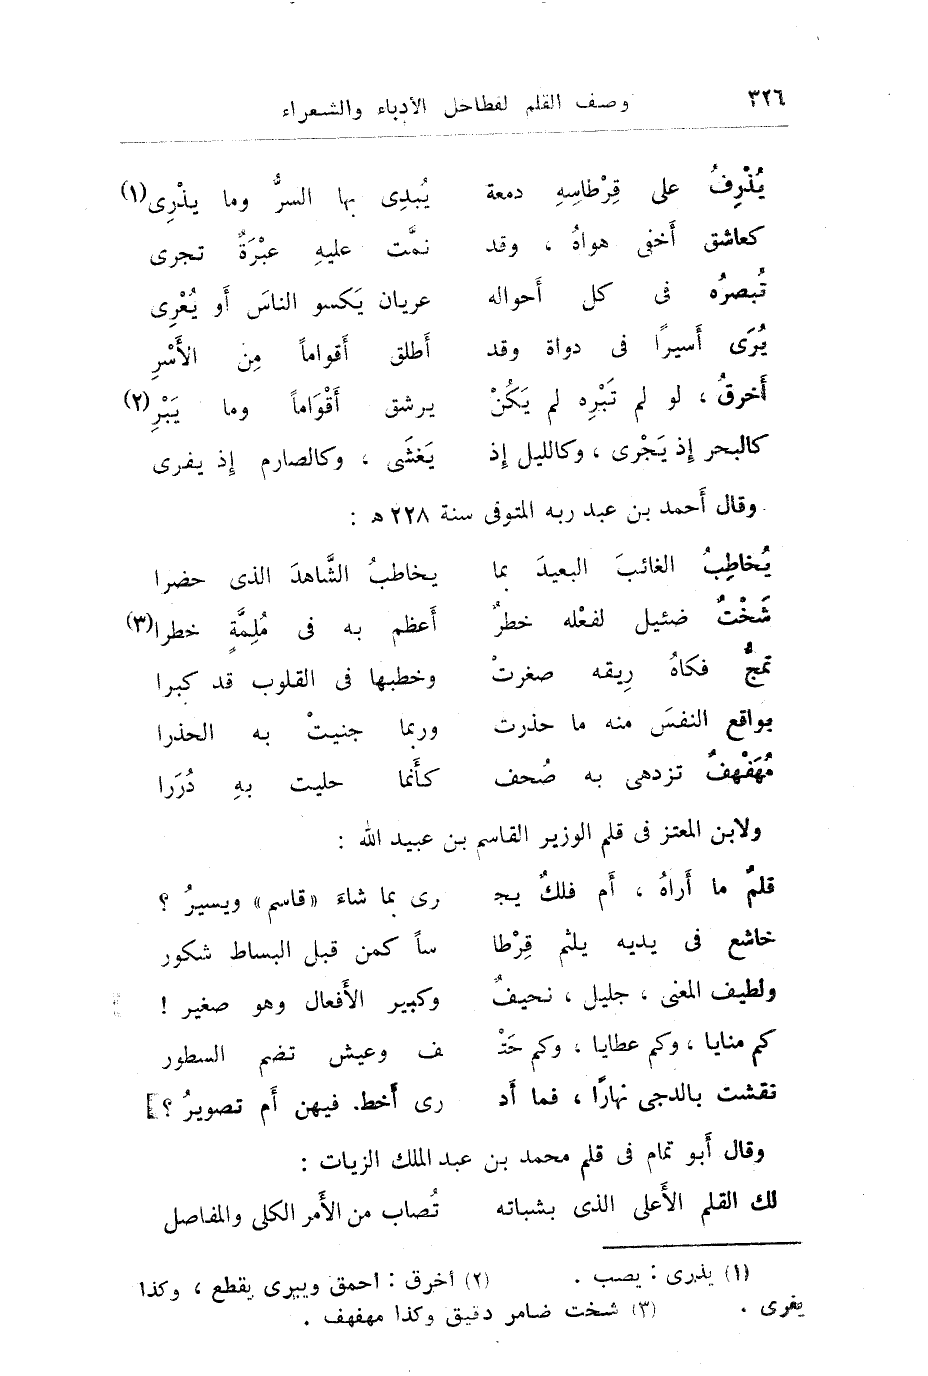 ٣٢٦ وصف القلم لفطاحل الأدباء والشعراء
يُذْرِفُ على قِرْطاسِهِ دمعة يُبدِى بها السرُّ وما يذْرِى(١)
كعاشق أَخفى هواهُ ، وقد نمَّت عليهِ عبْرَةٌ تجرى
تُبصرُه فى كل أَحواله عريان يَكسو الناسَ أَو يُعْرِى
يُرَى أَسيرًا فى دواة وقد أَطلق أَقواماً مِن الأَسْرِ
أَخرقُ ، لو لم تَبْرِه لم يَكُنْ يرشق أَقْوَاماً وما يَبْرِ(٢)
كالبحر إذ يَجْرى ، وكالليل إذ يَغشَى ، وكالصارم إذ يفرى
وقال أَحمد بن عبد ربه المتوفى سنة ٢٢٨ ه :
يُخاطِبُ الغائبَ البعيدَ بما يخاطبُ الشَّاهدَ الذى حضرا
شَخْتٌ ضئيل لفعْله خطرٌ أَعظم به فى مُلِمَّةٍ خطرا(٣)
تمجُّ فكاهُ رِيقه صغرتْ وخطبها فى القلوب قد كبرا
يواقع النفسَ منه ما حذرت وربما جنيتْ به الحذرا
مُهَفْهفٌ تزدهى به صُحف كأَنما حليت بهِ دُرَرا
ولابن المعتز فى قلم الوزير القاسم بن عبيد الله :
قلمٌ ما أَراهُ ، أَم فلكٌ يجـ ـرى بما شاءَ «قاسم» ويسيرُ ؟
خاشع فى يديه يلثم قِرْطا ساً كمن قبل البساط شكور
ولطيف المعنى ، جليل ، نحيفٌ وكبير الأَفعال وهو صغير !
كم منايا ، وكم عطايا ، وكم حَتْـ ـف وعيش تضم السطور
نقشت بالدجى نهارًا ، فما أَد رى أَخط. فيهن أَم تصويرُ ؟]
وقال أَبو تمام فى قلم محمد بن عبد الملك الزيات :
لك القلم الأَعلى الذى بشباته تُصاب من الأَمر الكلى والمفاصل
(١) يذرى : يصب . (٢) أخرق : احمق ويبرى يقطع ، وكذا
يفرى . (٣) شخت ضامر دقيق وكذا مهفهف .